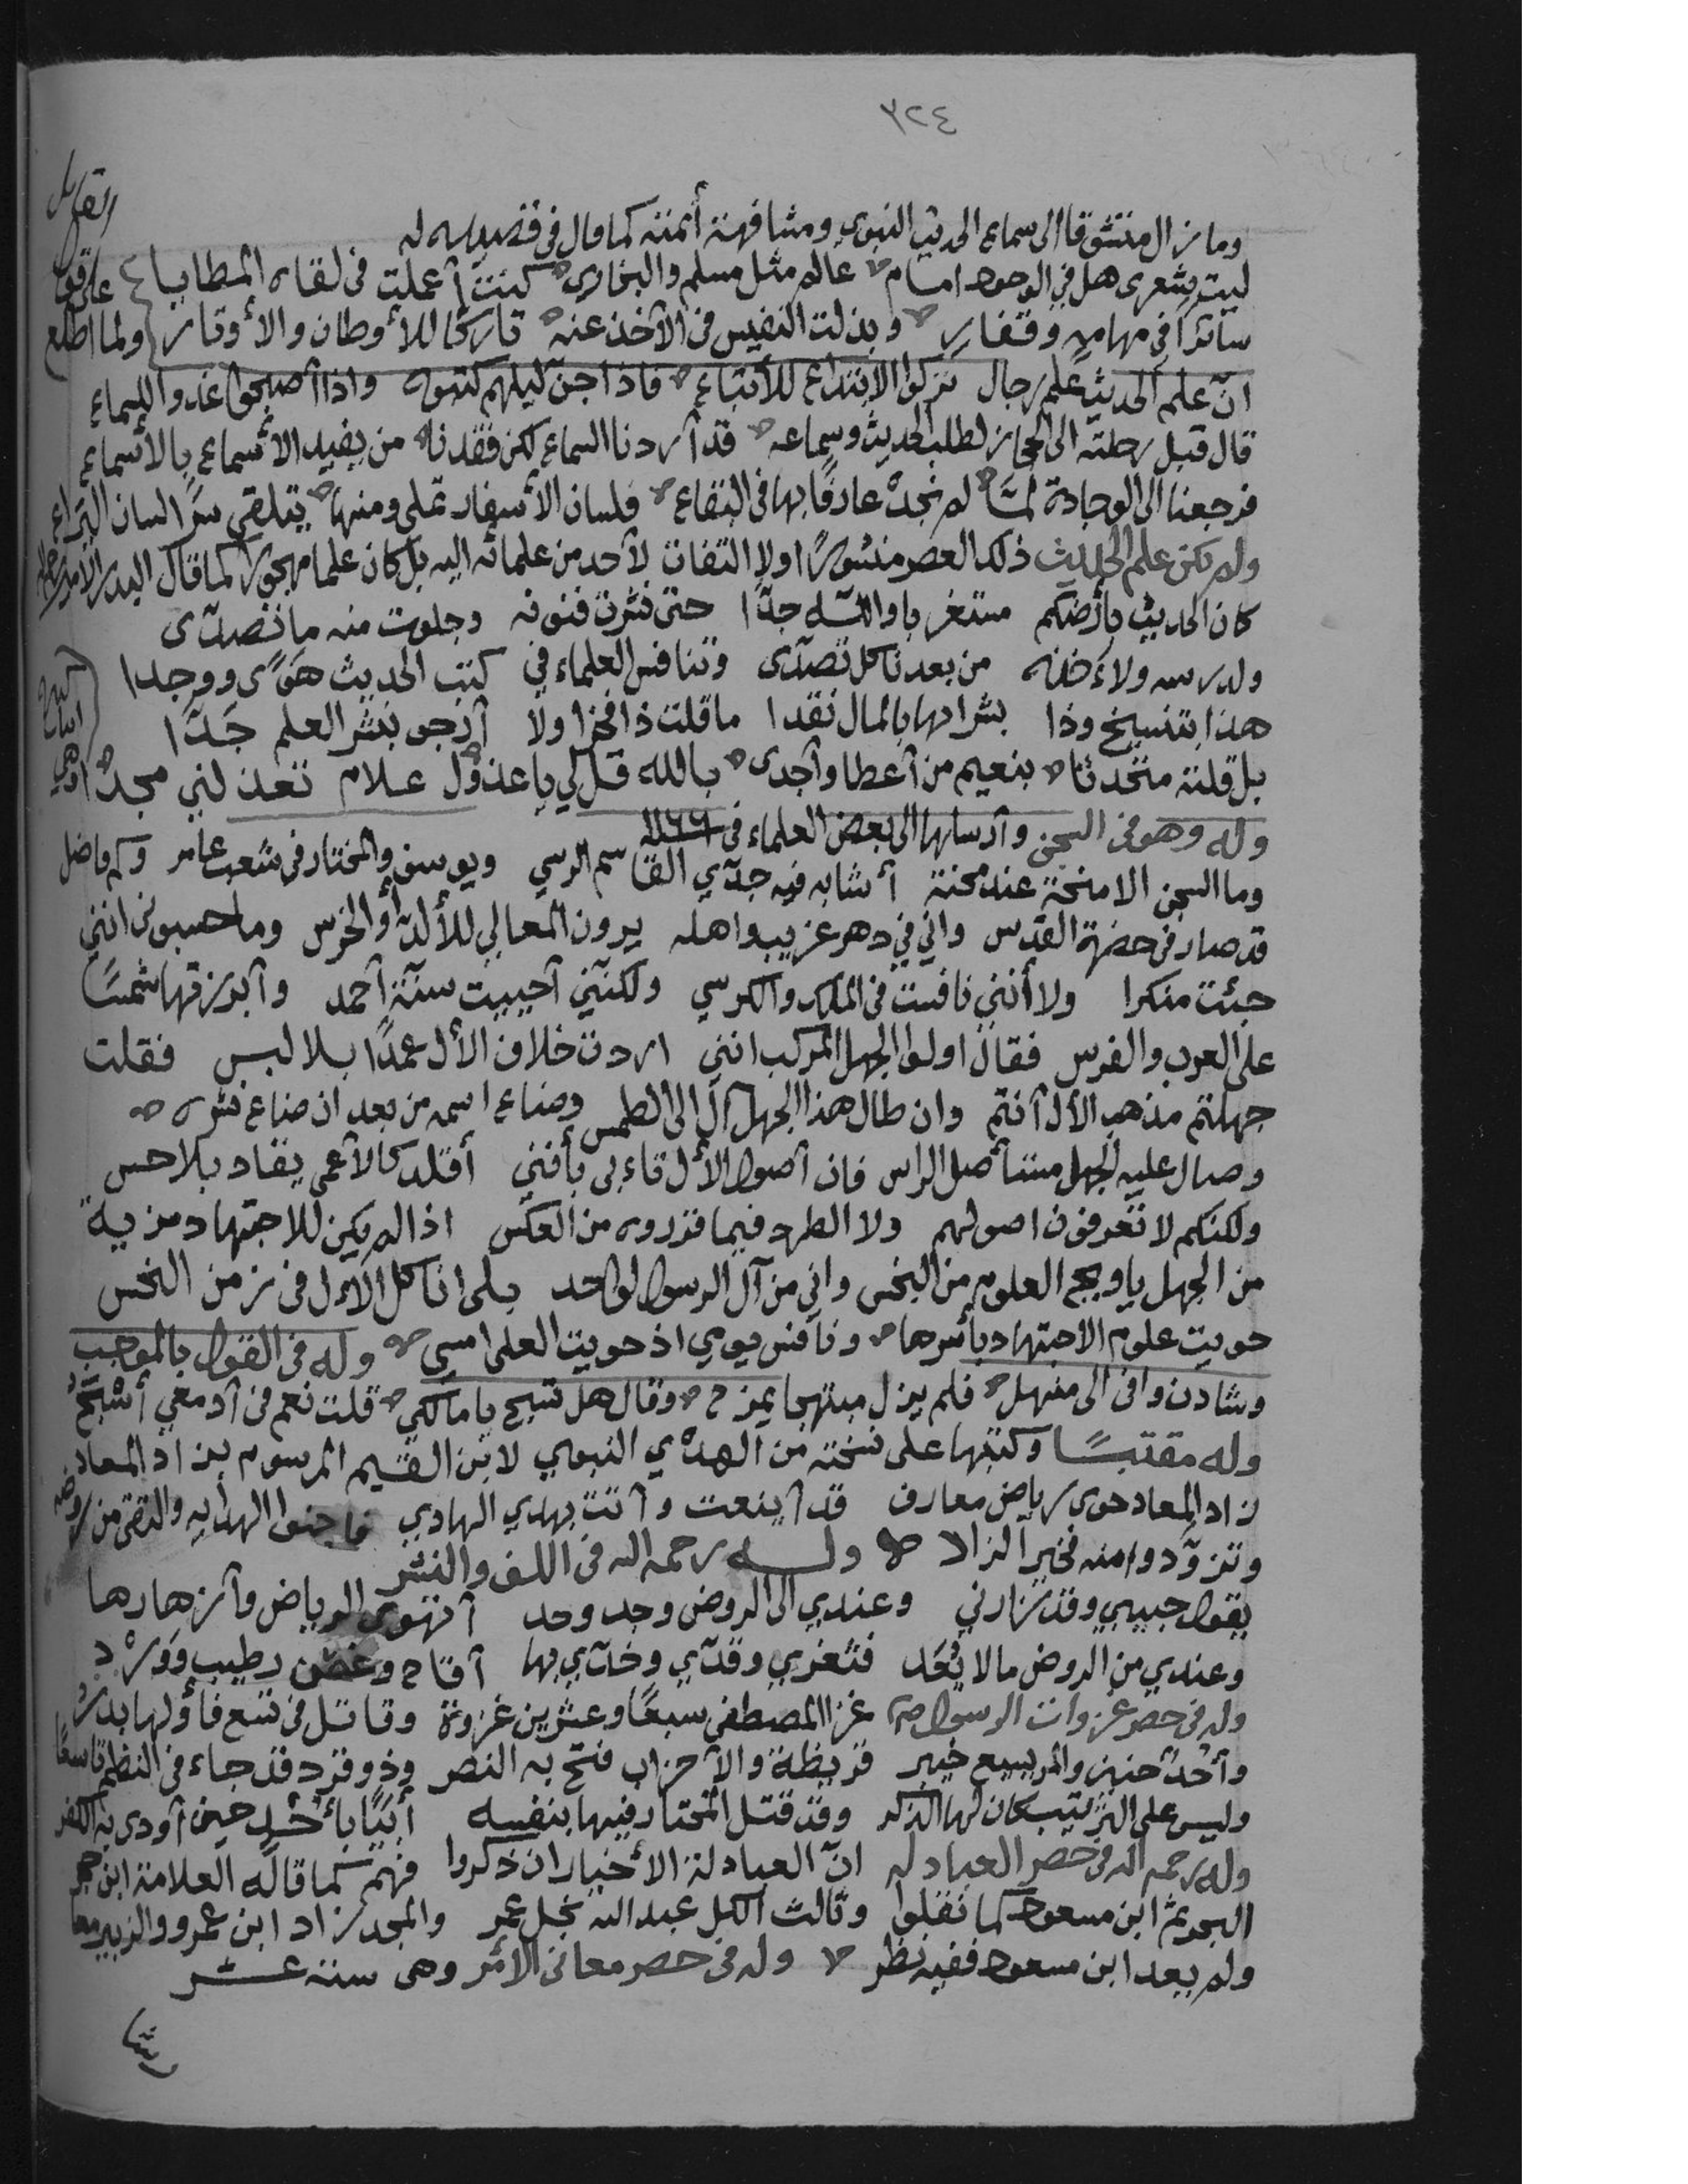 ٣٢٤
وما زال متشوقا الى سماع الحديث النبوي ومشافهة أئمته كما قال في قصيدة له
ليت شعري هل في الوجود امام عالم مثل مسلم والبخاري كنت أعملت في لقاه المطايا
سائرا في مهامه وقفار وبذلت النفيس في الأخذ عنه تاركا للأوطان والأوتار ولما اطلع
على قول القائل
انّ علم الحديث علم رجال تركوا الابتداع للأتباع فاذا جن ليلهم كتبوه واذا أصبحوا غدوا للسماع
قال قبل رحلته الى الحجاز لطلب الحديث وسماعه قد أردنا السماع لكن فقدنا من يفيد الأسماع بالأسماع
فرجعنا الى الوجادة لمّا لم نجد عارفا بها في البقاع فلسان الأسفار تملي ومنها يتلقى سرا لسان اليراع
ولم يكن علم الحديث ذلك العصر منشورًا ولا التفات لأحد من علمائه اليه بل كان علما مهجورا كما قال البدر الأمير رحمه الله
كان الحديث بأرضكم مستغربا والله جدّا حتى نشرت فنونه وجلوت منه ما تصدّى
ولدرسه ولأخذه من بعدنا كل تصدّى وتنافس العلماء في كتب الحديث هوًى ووجدا
هذا بتنسيخ وذا بشرائها بالمال نقدا ما قلت ذا فخرا ولا أرجو بنشر العلم جَدّا
بل قلته متحدثا بنعيم من أعطا وأجدى بالله قل لي يا عذول علام تعذلني مجدا وهي
وله وهو في السجن وأرسلها الى بعض العلماء في ١١٦٦
وما السجن الا منحة عند محنة أشابه فيه جدّي القاسم الرسي ويوسف والمختار في شعب عامر وكم فاضل
قد صار في حضرة القدس واني في دهر غريب واهله يرون المعالي للألدّ أو الخرس وما حسبوني انني
جئت منكرا ولا أنني نافست في الملك والكرسي ولكنني أحييت سنة أحمد وأبرزتها شمسًا
على العرب والفرس فقال اولوا الجهل المركب انني اردت خلاف الأل عمدًا بلا لبس فقلت
جهلتم مذهب الأل أنتم وان طال هذا الجهل آل الى الطمس وضاع اسمه من بعد ان ضاع نشره
وصال عليه الجهل مستأصل الراس فان أصول الأل قاءلي بأنني أقلد كالأعمى يقاد بلا حس
ولكنكم لا تعرفون اصولهم ولا الطرد فيما تزدروه من العكس اذا لم يكن للاجتهاد مزية
من الجهل يا ويح العلوم من البخس واني من آل الرسول لواحد بلى انا كل الأل في زمن النحس
حويت علوم الاجتهاد بأسرها ونافس يومي اذ حويت العلى امسي وله في القول بالموجب
وشادن وافى الى منهل فلم يزل مبتهجا يمزح وقال هل تسبح يا مالكي قلت نعم في أدمعي أسبح
وله مقتبسًا وكتبها على نسخة من الهدْي النبوي لابن القيم المرسوم بزاد المعاد
زاد المعاد حوى رياض معارف قد أينعت وأتت بهدي الهادي فاجنوا الهداية والتقى من روضه
وتزوّدوا منه فخير الزاد وله رحمه الله في اللف والنشر
يقول حبيبي وقد زارني وعندي الى الروض وجد وحد أتهوى الرياض وأزهارها
وعندي من الروض ما لا يُحَد فثغري وقدّي وخدّي بها أقاح وغصن رطيب ووردْ
وله في حصر غزوات الرسول صم غزا المصطفى سبعًا وعشرين غزوة وقاتل في تسع فأولها بدرُ
وأحدٌ حنين والمريسيع خيبر قريظة والأحزاب فتح به النصر وذو قرد قد جاء في النظم تاسعًا
وليس على الترتيب كان لها الذكر وقد قتل المختار فيها بنفسه أُبَيًّا بأحد حين أودى به الكفر
وله رحمه الله في حصر العبادله انّ العبادلة الأخيار ان ذكروا فهم كما قاله العلامة ابن حجر
البحر ثم ابن مسعود كما نقلوا وثالث الكل عبد الله نجل عمر والمجد زاد ابن عمرو والزبير معا
ولم يعد ابن مسعود ففيه نظر وله في حصر معاني الأمر وهي ستة عشر